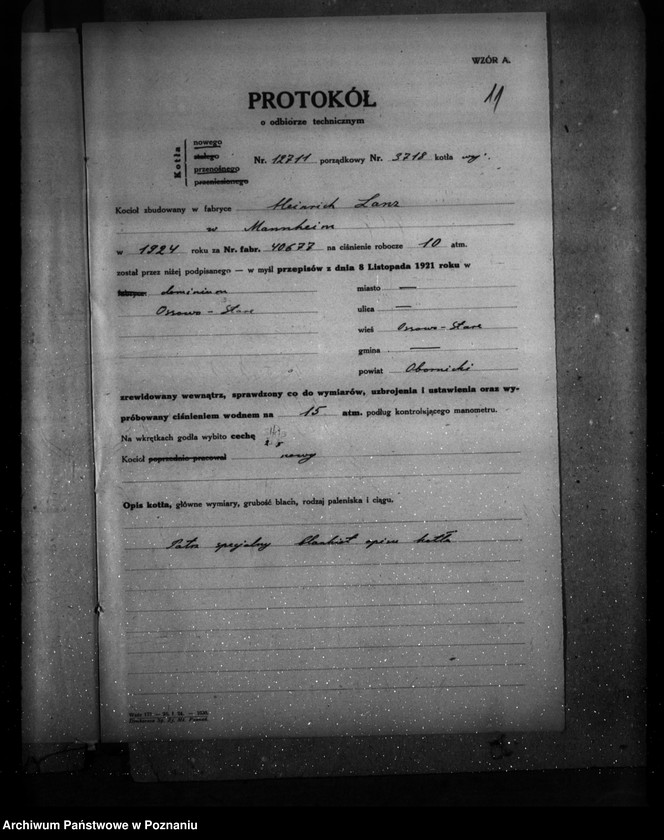 WZÓR A.
11
PROTOKÓŁ
o odbiorze technicznym
Kotła
nowego
stałego
przenośnego
przeniesionego
Nr. 12711 porządkowy Nr. 3718 kotła
Kocioł zbudowany w fabryce Heinrich Lanz
w Mannheim
w 1924 roku za Nr. fabr. 40677 na ciśnienie robocze 10 atm.
został przez niżej podpisanego — w myśl przepisów z dnia 8 Listopada 1921 roku w
fabryce: dominium
miasto —
ulica —
wieś
gmina —
powiat Obornicki
zrewidowany wewnątrz, sprawdzony co do wymiarów, uzbrojenia i ustawienia oraz wy-
próbowany ciśnieniem wodnem na 15 atm. podług kontrolującego manometru.
Na wkrętkach godła wybito cechę
Kocioł poprzednio pracował nowy
Opis kotła, główne wymiary, grubość blach, rodzaj paleniska i ciągu.
Patrz specjalny blankiet opisu kotła
Archiwum Państwowe w Poznaniu